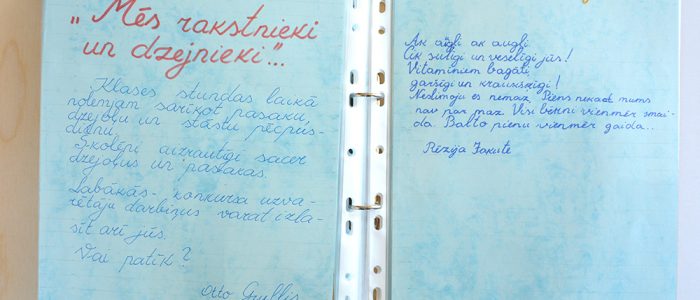 „Mēs rakstnieki
un dzejnieki"...
Klases stundas laikā
nolēmām sarīkot pasaku,
dzejoļu un stāstu pēcpus-
dienu.
Skolēni aizrautīgi sacer
dzejoļus un pasakas.
Labākās- konkursa uzva-
rētāju darbiņus varat izla-
sīt arī jūs.
Vai patīk?
Otto Gryllis
Ak augļi ak augļi
Cik sulīgi un veselīgi jūs!
Vitamīniem bagāti,
garšīgi un kraukšķīgi!
Neslimoju es nemaz. Piens nekad mums
nav par maz. Visi bērni vienmēr smai-
da. Balto pienu vienmēr gaida...
Rēzija Jakute